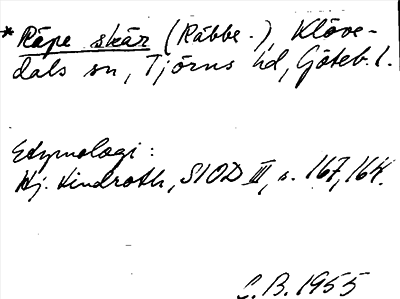 * Råpe skär (Råbbe-), Klöve-
dals sn, Tjörns hd, Göteb. l.
Etymologi:
Hj. Lindroth, SIOD III, s. 167, 164.
C.B. 1955